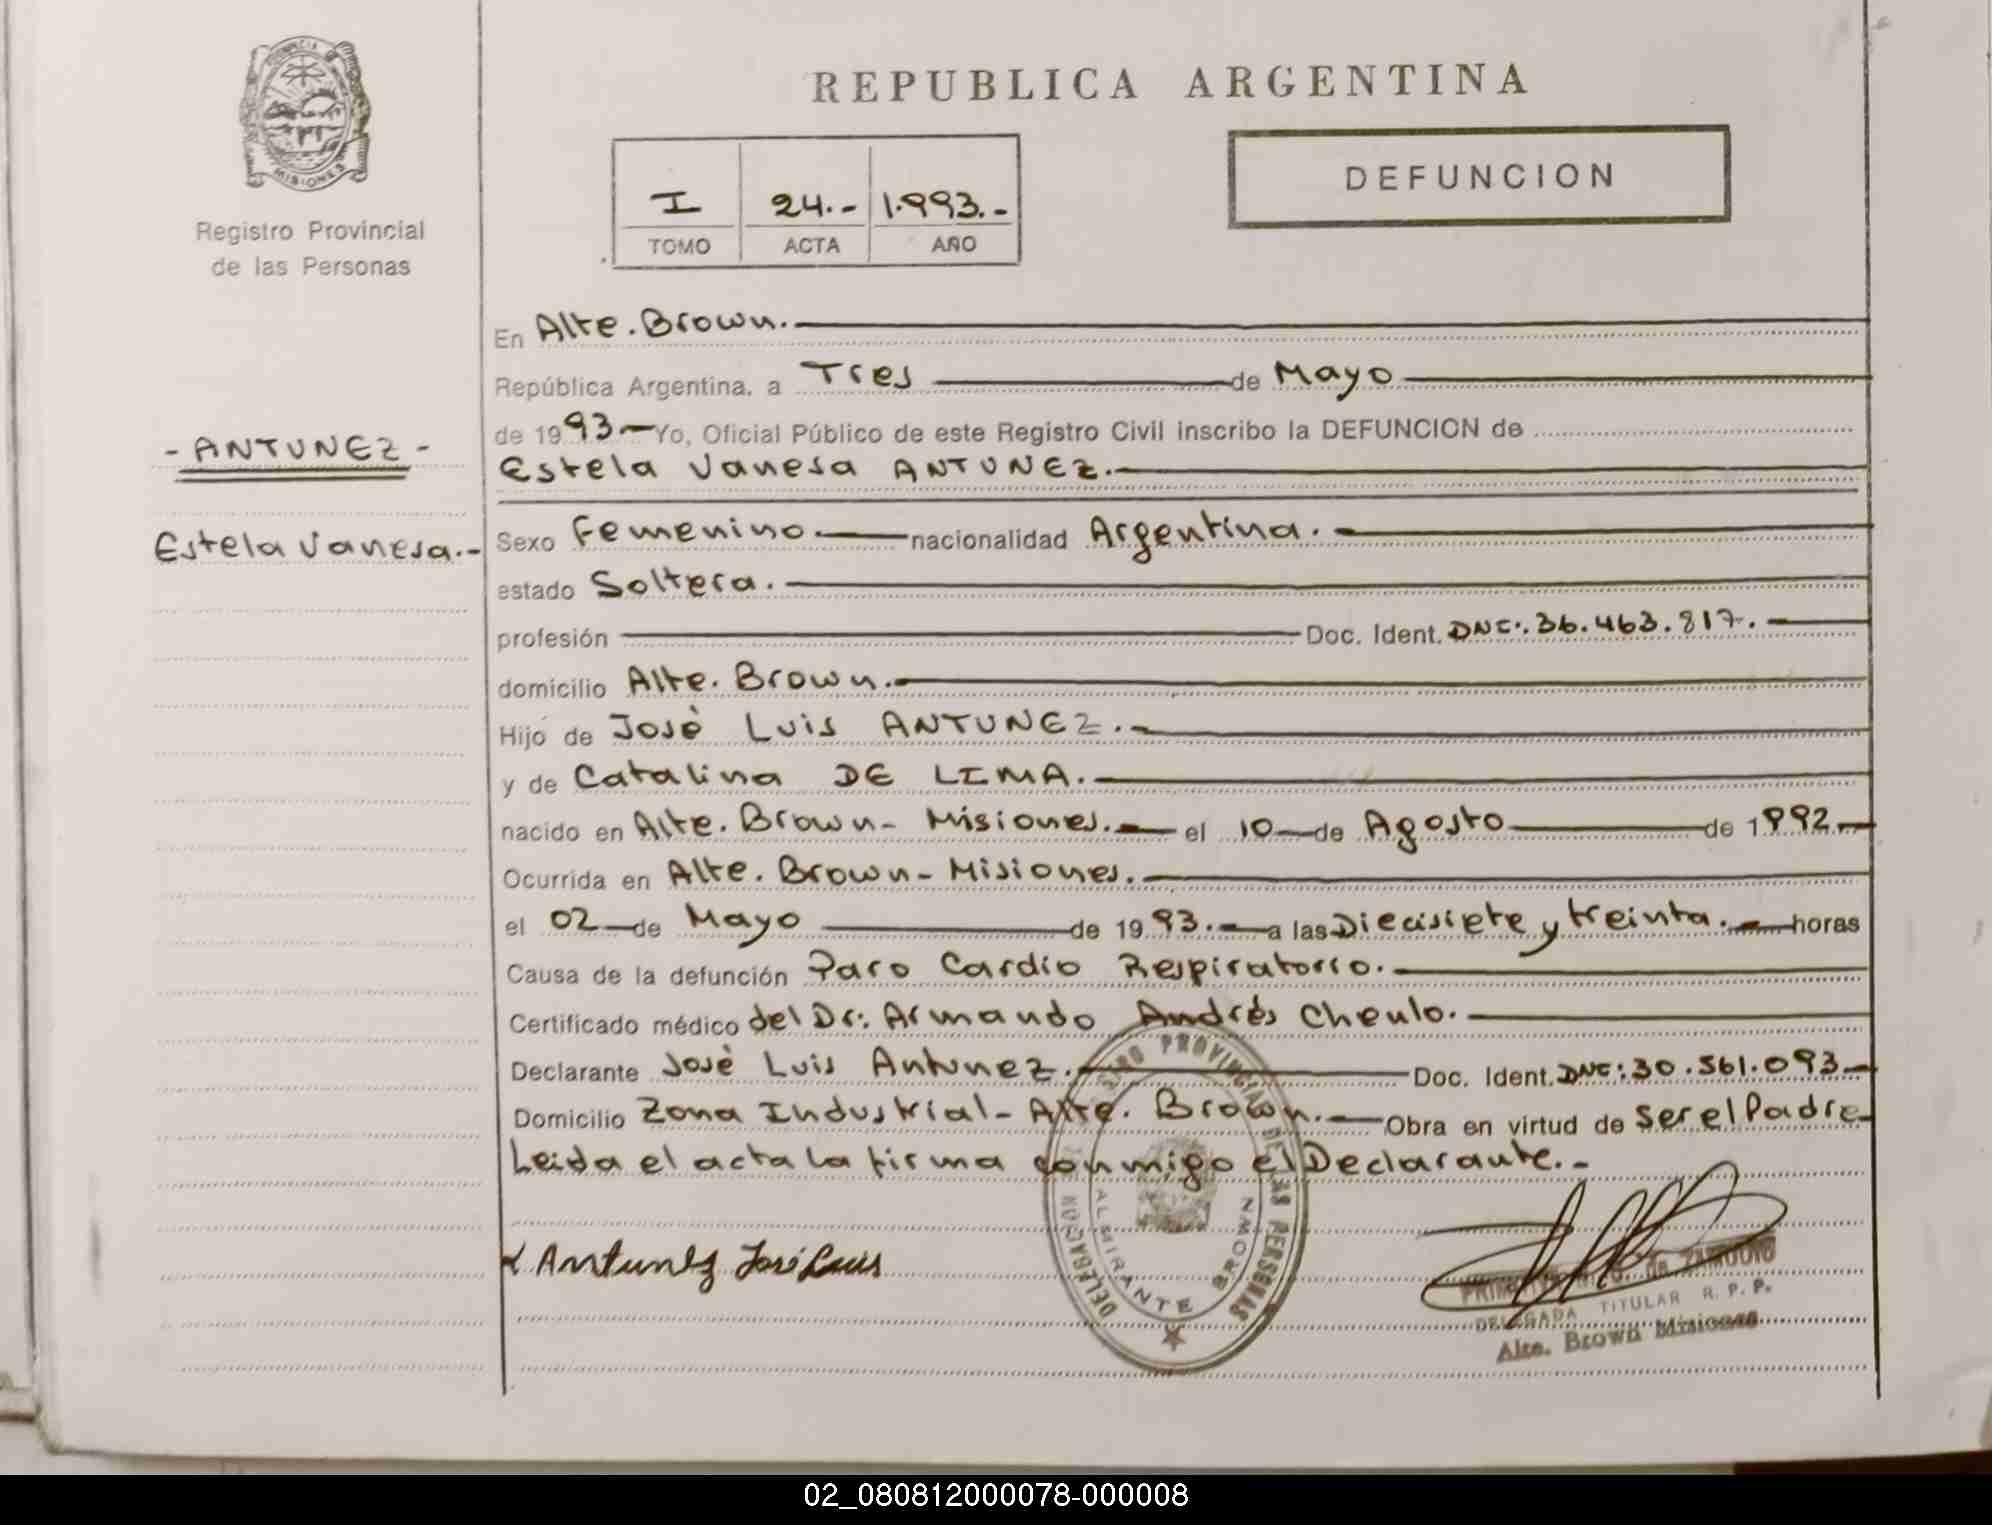 PROVINCIA DE
MISIONES
Registro Provincial
de las Personas
- ANTUNEZ -
Estela Vanesa.-
REPUBLICA ARGENTINA
I 24.- 1.993.-
TOMO ACTA AÑO
DEFUNCION
En Alte. Brown.
República Argentina, a Tres de Mayo
de 1993 Yo, Oficial Público de este Registro Civil inscribo la DEFUNCION de
Estela Vanesa ANTUNEZ.
Sexo Femenino. nacionalidad Argentina.
estado Soltera.
profesión Doc. Ident. DNI: 36.463.817.
domicilio Alte. Brown.
Hijo de Josè Luis ANTUNEZ.
y de Catalina DE LIMA.
nacido en Alte. Brown- Misiones. el 10 de Agosto de 1992.
Ocurrida en Alte. Brown- Misiones.
el 02 de Mayo de 1993. a las Diecisiete y treinta. horas
Causa de la defunción Paro Cardio Respiratorio.
Certificado médico del Dr: Armando Andrés Cheulo.
Declarante Josè Luis Antunez. Doc. Ident. DNI: 30.561.093
Domicilio Zona Industrial- Alte. Brown. Obra en virtud de ser el Padre
Leida el acta la firma conmigo el Declarante.-
Antunez José Luis
REGISTRO PROVINCIAL DE LAS PERSONAS
DELEGACION
ALMIRANTE BROWN
DE ZAMUDIO
DELEGADA TITULAR R. P. P.
Alte. Brown Misiones
02_080812000078-000008